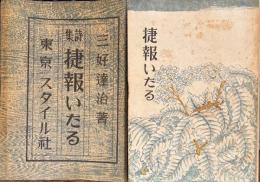 三好達治著
詩集 捷報いたる
東京 スタイル社
捷報いたる